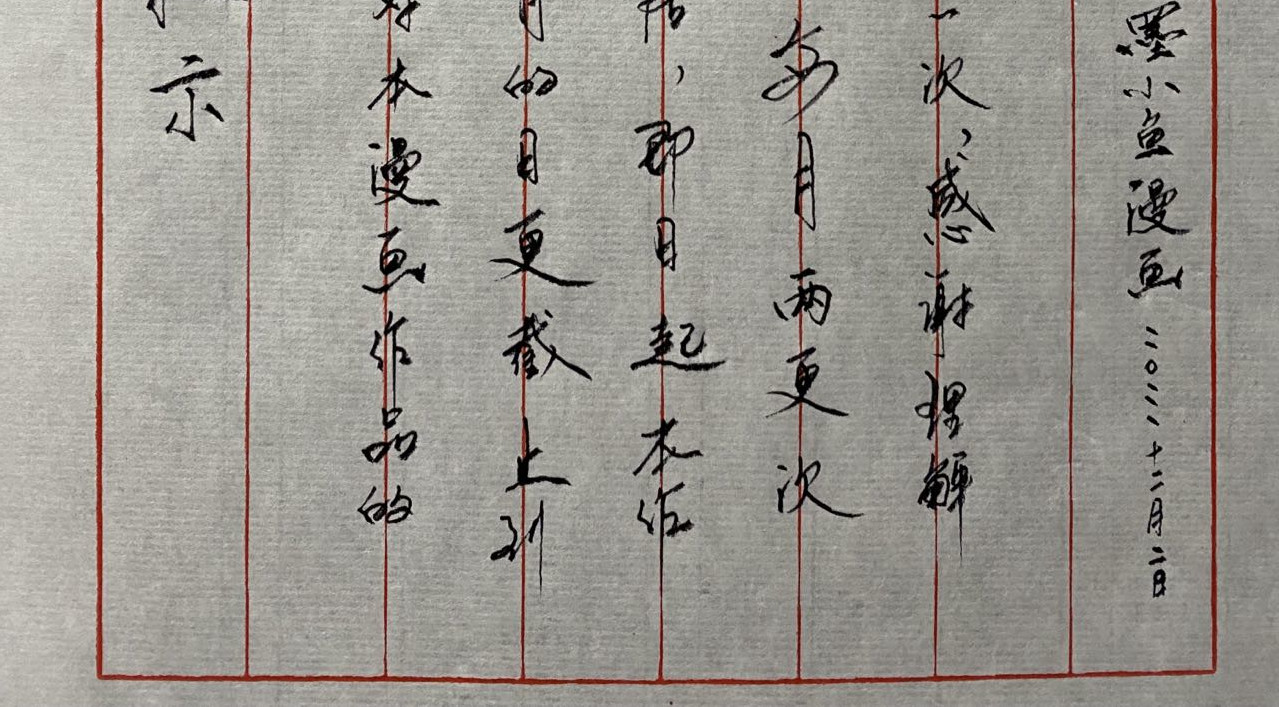 示
本漫画作品的
的日更截止到
，即日起本作
每月两更次
一次，感谢理解
墨小鱼漫画 二〇二二十二月二日